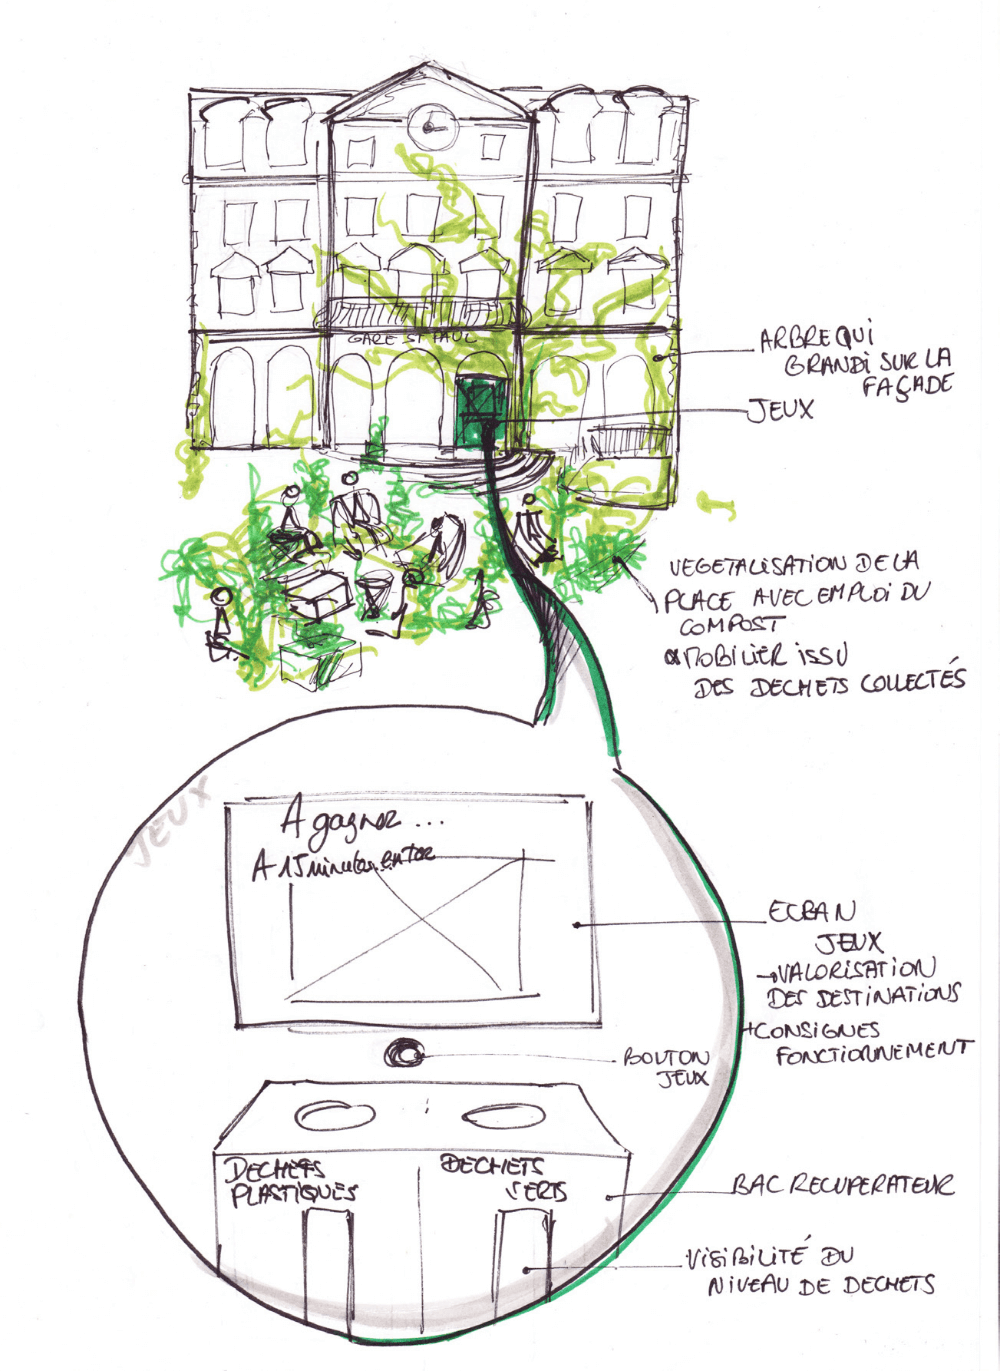 GARE ST PAUL
ARBRE QUI
GRANDI SUR LA
FAÇADE
JEUX
VEGETALISATION DE LA
PLACE AVEC EMPLOI DU
COMPOST
MOBILIER ISSU
DES DECHETS COLLECTÉS
JEUX
A gagner ...
A 15 minutes en ter
ECRAN
JEUX
→ VALORISATION
DES DESTINATIONS
+ CONSIGNES
FONCTIONNEMENT
BOUTON
JEUX
DECHETS
PLASTIQUES
DECHETS
VERTS
BAC RECUPERATEUR
VISIBILITÉ DU
NIVEAU DE DECHETS